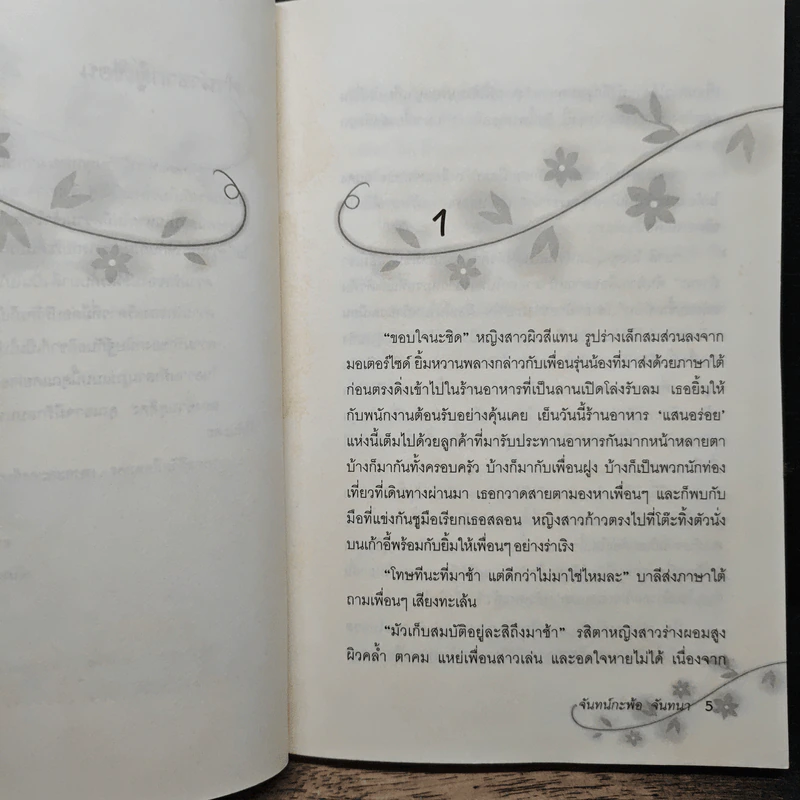 1
“ขอบใจนะชิด” หญิงสาวผิวสีแทน รูปร่างเล็กสมส่วนลงจาก
มอเตอร์ไซด์ ยิ้มหวานพลางกล่าวกับเพื่อนรุ่นน้องที่มาส่งด้วยภาษาใต้
ก่อนตรงดิ่งเข้าไปในร้านอาหารที่เป็นลานเปิดโล่งรับลม เธอยิ้มให้
กับพนักงานต้อนรับอย่างคุ้นเคย เย็นวันนี้ร้านอาหาร ‘แสนอร่อย’
แห่งนี้เต็มไปด้วยลูกค้าที่มารับประทานอาหารกันมากหน้าหลายตา
บ้างก็มากันทั้งครอบครัว บ้างก็มากับเพื่อนฝูง บ้างก็เป็นพวกนักท่อง
เที่ยวที่เดินทางผ่านมา เธอกวาดสายตามองหาเพื่อนๆ และก็พบกับ
มือที่แข่งกันชูมือเรียกเธอสลอน หญิงสาวก้าวตรงไปที่โต๊ะทิ้งตัวนั่ง
บนเก้าอี้พร้อมกับยิ้มให้เพื่อนๆ อย่างร่าเริง
“โทษทีนะที่มาช้า แต่ดีกว่าไม่มาใช่ไหมละ” บาลีส่งภาษาใต้
ถามเพื่อนๆ เสียงทะเล้น
“มัวเก็บสมบัติอยู่ละสิถึงมาช้า” รสิตาหญิงสาวร่างผอมสูง
ผิวคล้ำ ตาคม แหย่เพื่อนสาวเล่น และอดใจหายไม่ได้ เนื่องจาก
จันทน์กะพ้อ จันทนา 5